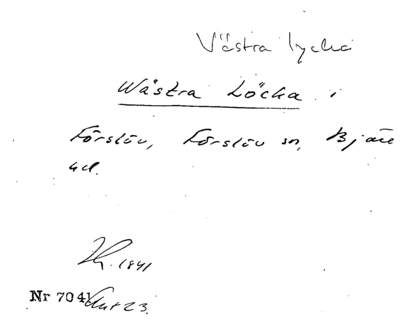 Västra lycka
Wästra Löcka i
Förslöv, Förslöv sn, Bjäre
hd.
1841
Nr 7041 Akt 23.